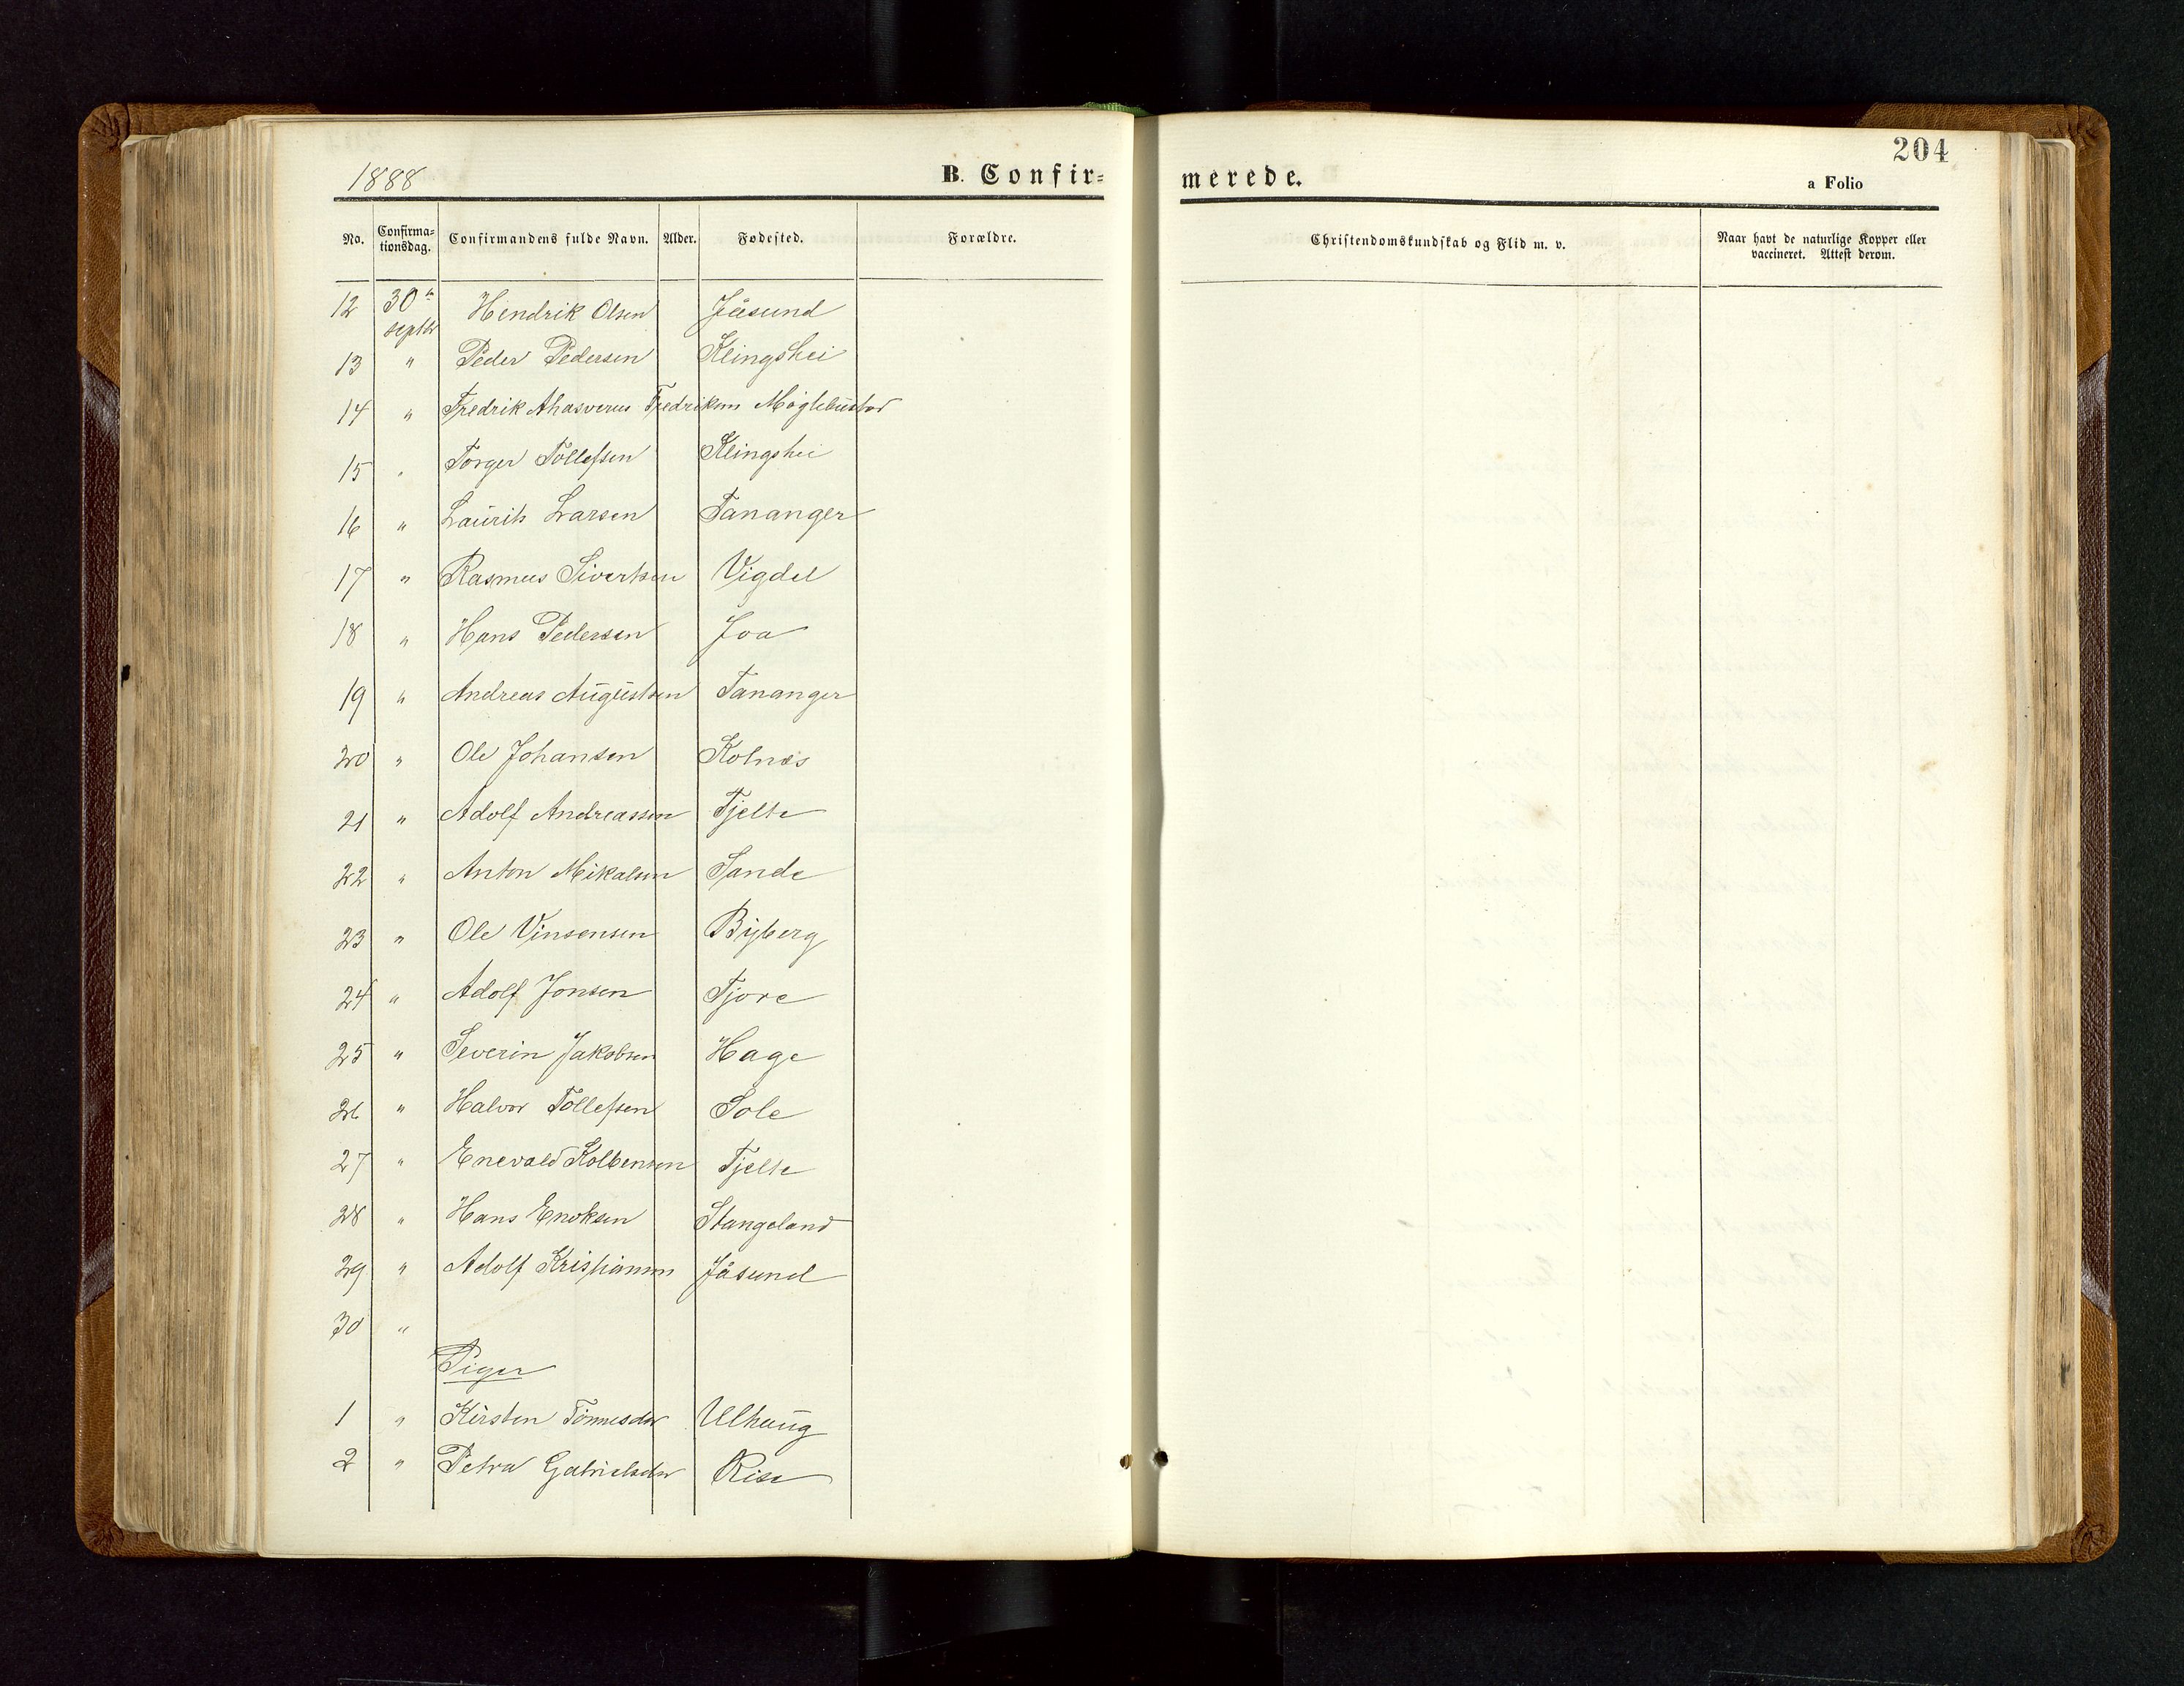 204
1888 B. Confir= merede. a Folio
No. Confirma=tionsdag. Confirmandens fulde Navn. Alder. Fødested. Forældre. Christendomskundskab og Flid m. v. Naar havt de naturlige Kopper eller vaccineret. Attest derom.
12 30te septbr Hendrik Olsen Jåsund
13 " Peder Pedersen Klingshei
14 " Fredrik Ahasverus Fredriksen Møglebustad
15 " Torger Tollefsen Klingshei
16 " Laurits Larsen Tananger
17 " Rasmus Sivertsen Vigdel
18 " Hans Pedersen Joa
19 " Andreas Augustsen Tananger
20 " Ole Johansen Kolnæs
21 " Adolf Andreassen Tjelte
22 " Anton Mikalsen Sande
23 " Ole Vinsensen Byberg
24 " Adolf Jonsen Tjore
25 " Severin Jakobsen Hage
26 " Halvor Tollefsen Sole
27 " Enevald Kolbensen Tjelte
28 " Hans Enoksen Stangeland
29 " Adolf Kristiansen Jåsund
30 "
Piger
1 " Kirsten Tønnesdtr Ulhaug
2 " Petra Gabrielsdtr Risa